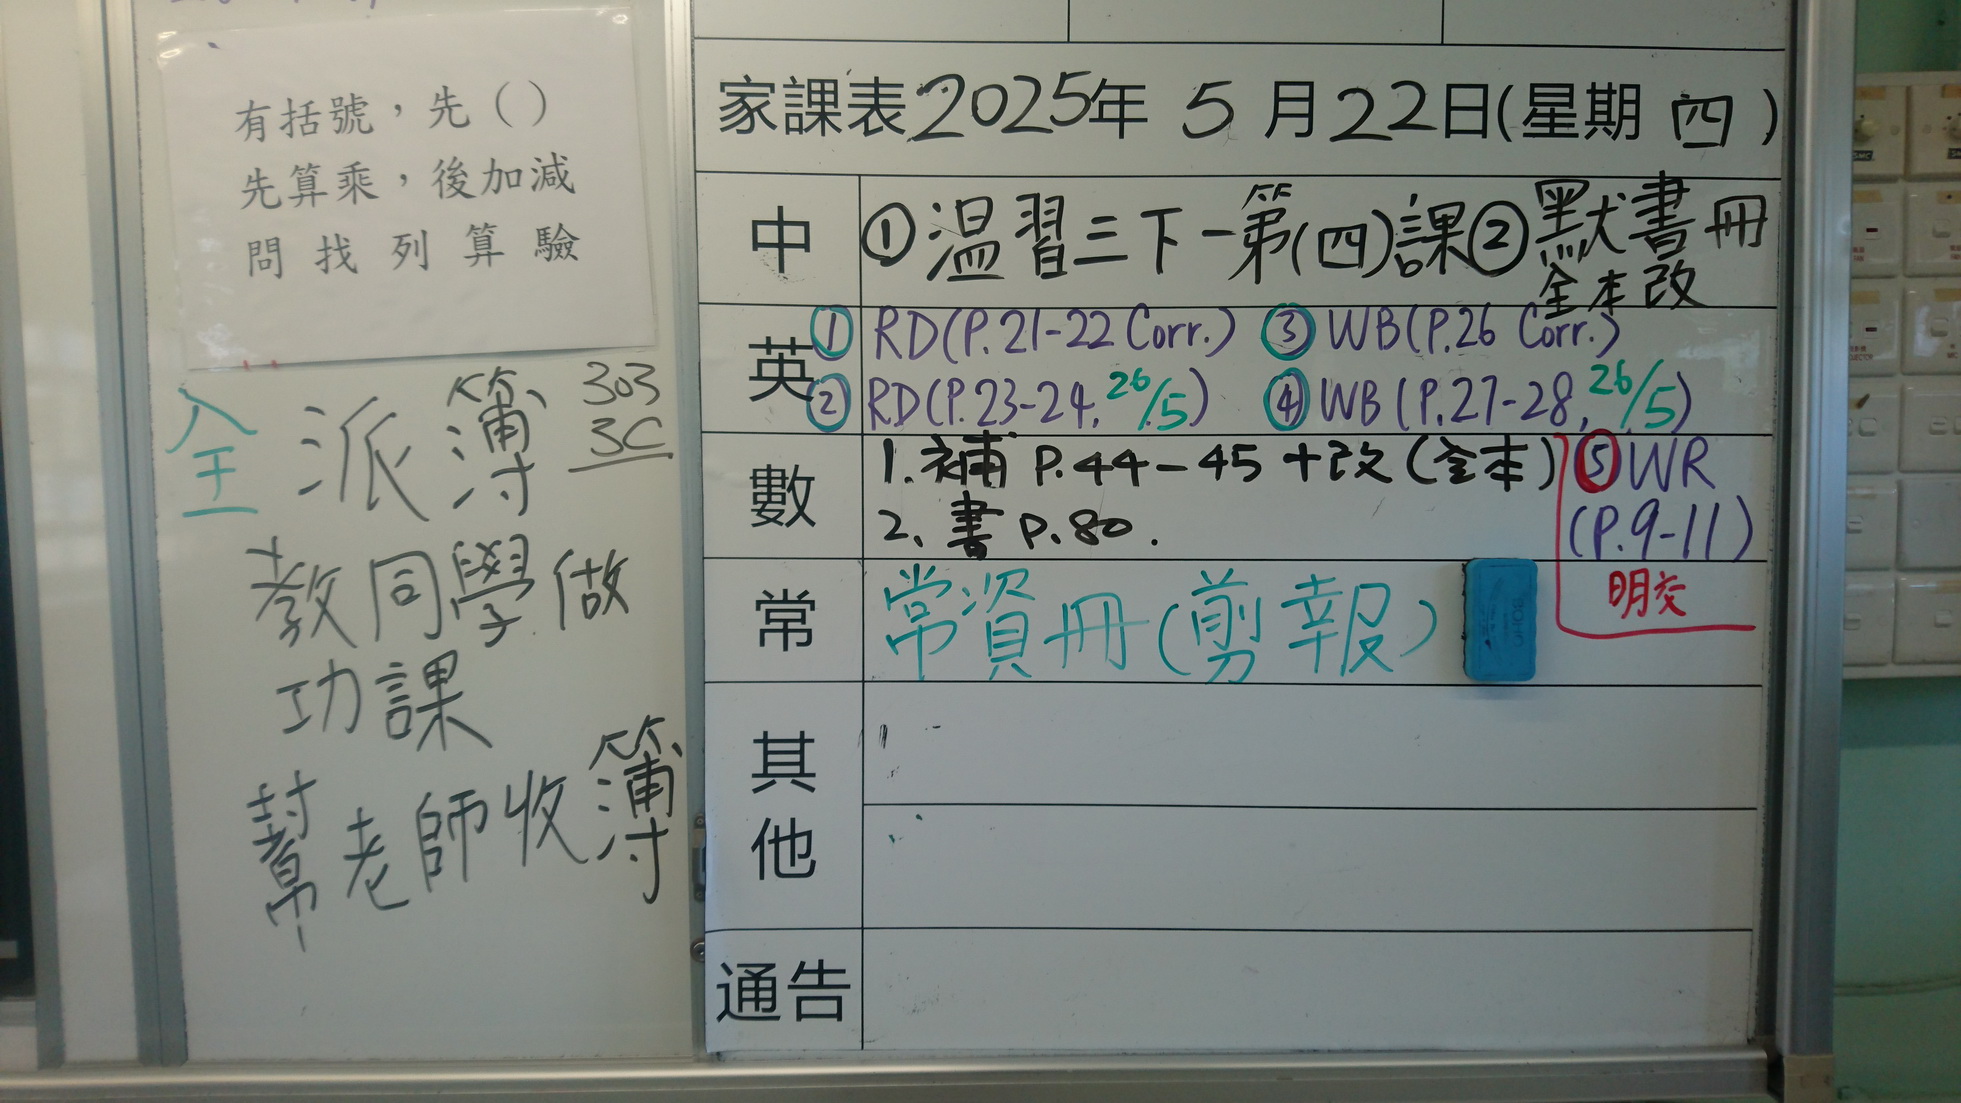 有括號，先（）
先算乘，後加減
問找列算驗
303
3C
全 派簿
教同學做
功課
幫老師收簿
家課表2025年 5 月22日(星期 四 )
中 ①温習三下一第(四)課②默書冊
全本改
英 ① RD(P.21-22 Corr.) ③ WB(P.26 Corr.)
② RD(P.23-24, 26/5) ④ WB (P.27-28, 26/5)
數 1. 補 P.44-45 + 改 (全本)
2. 書 P.80.
⑤ WR
(P.9-11)
明交
常 常資冊(剪報)
其他
通告